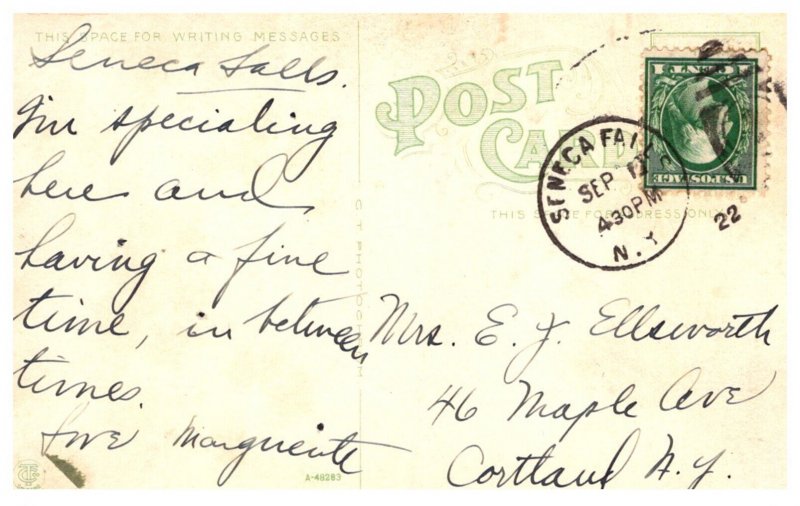 THIS SPACE FOR WRITING MESSAGES
Seneca Falls.
I'm specialing
here and
having a fine
time, in between
times.
Love Marguerite
POST
CARD
THIS SPACE FOR ADDRESS ONLY
SENECA FALLS
SEP
430PM
N.Y.
22
U.S. POSTAGE
1 CENT 1
Mrs. E. J. Ellsworth
46 Maple Ave
Cortland N.Y.
C T PHOTOCHROM
A-48283